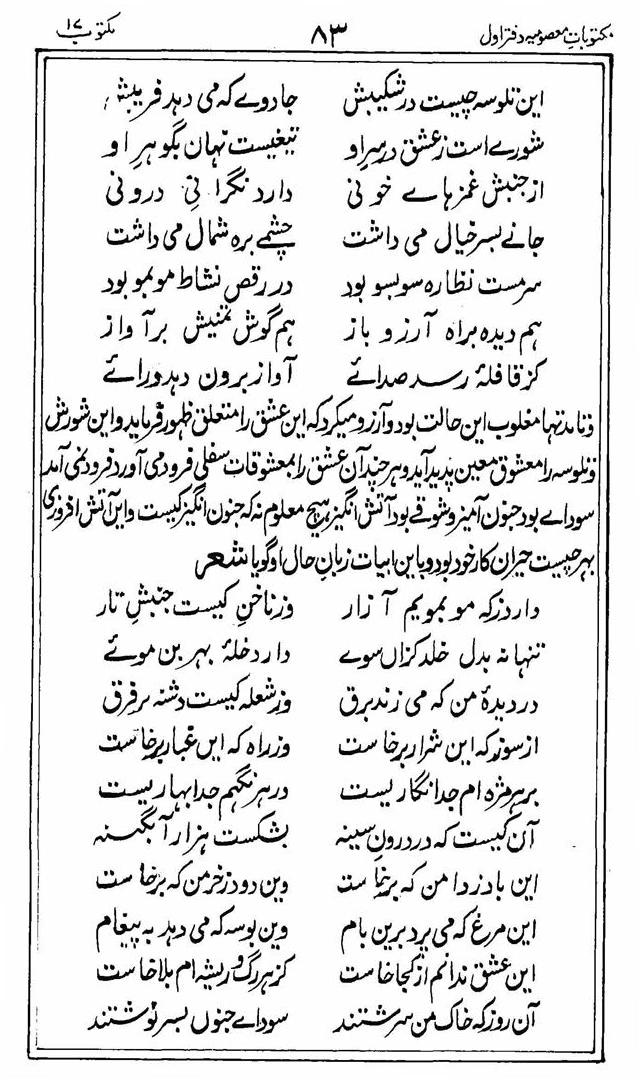 مکتوبات معصومیہ دفتر اول ۸۳ مکتوب ۱۷
این تلوسه چیست در شکیبش جادوے که می دهد فریبش
شورے است ز عشق در سرِ او تیغیست نهان بگوهرِ او
از جنبش غمزهاے خونی دارد نگرانیِ درونی
جانے بسر خیال می داشت چشمے بره شمال می داشت
سرمست نظاره سو بسو بود در رقص نشاط مو بمو بود
هم دیده براه آرزو باز هم گوش بر آواز
کز قافلهٔ رسد صدائے آواز برون دهد درائے
و تا مدتها مغلوب این حالت بود و آرزو میکرد که این عشق را متعلق ظهور فرماید و این شورش
و تلوسه را معشوق معین پدید آمد و هر چند آن عشق را بمعشوقات سفلی فرود می آورد فرود نمی آمد
سوداے بود جنون آمیز و شوقے بود آتش انگیز هیچ معلوم نه که جنون انگیز کیست و این آتش افروزی
بهر چیست حیران کار خود بود و باین ابیات زبانِ حال او گویا شعر
دارد ز که مو بمویم آزار وز ناخنِ کیست جنبشِ تار
تنها نه بدل خلد کزان سوے دارد خلهٔ بهر بن موئے
در دیدهٔ من که می زند برق وز شعله کیست دشنه بر فرق
از سوز که این شرار برخاست وز راه که این غبار برخاست
بر هر مژه ام جدا نگاریست در هر نگهم جدا بهاریست
آن کیست که در درونِ سینه بشکست هزار آبگینه
این باد ز دامن که برخاست وین دود ز خرمن که برخاست
این مرغ که می پرد برین بام وین بوسه که می دهد به پیغام
این عشق ندانم از کجا خاست کز هر رگ و ریشه ام بلا خاست
آن روز که خاک من سرشتند سوداے جنوں بسر نوشتند